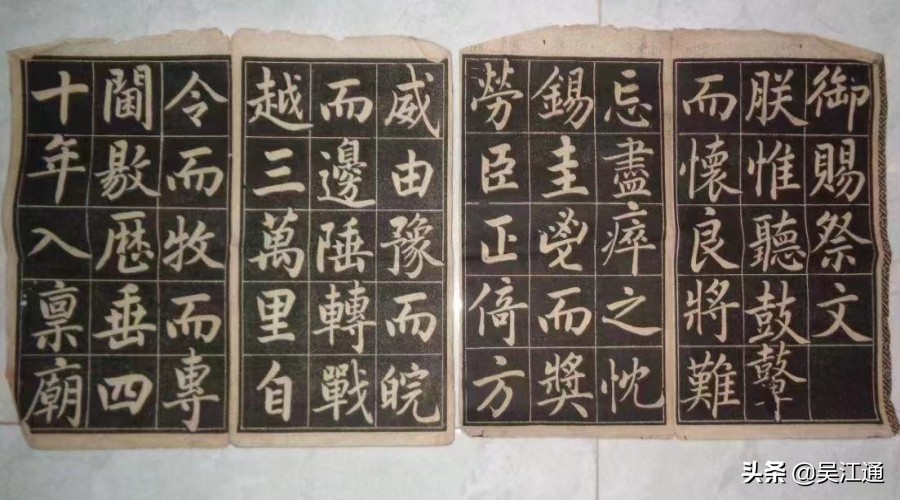 御賜祭文
朕惟聽鼓鼙
而懷良將難
忘盡瘁之忱
錫圭鬯而獎
勞臣正倚方
威由豫而皖
而邊陲轉戰
越三萬里自
令而牧而專
閫敭歴垂四
十年入稟廟
头条 @吴江通